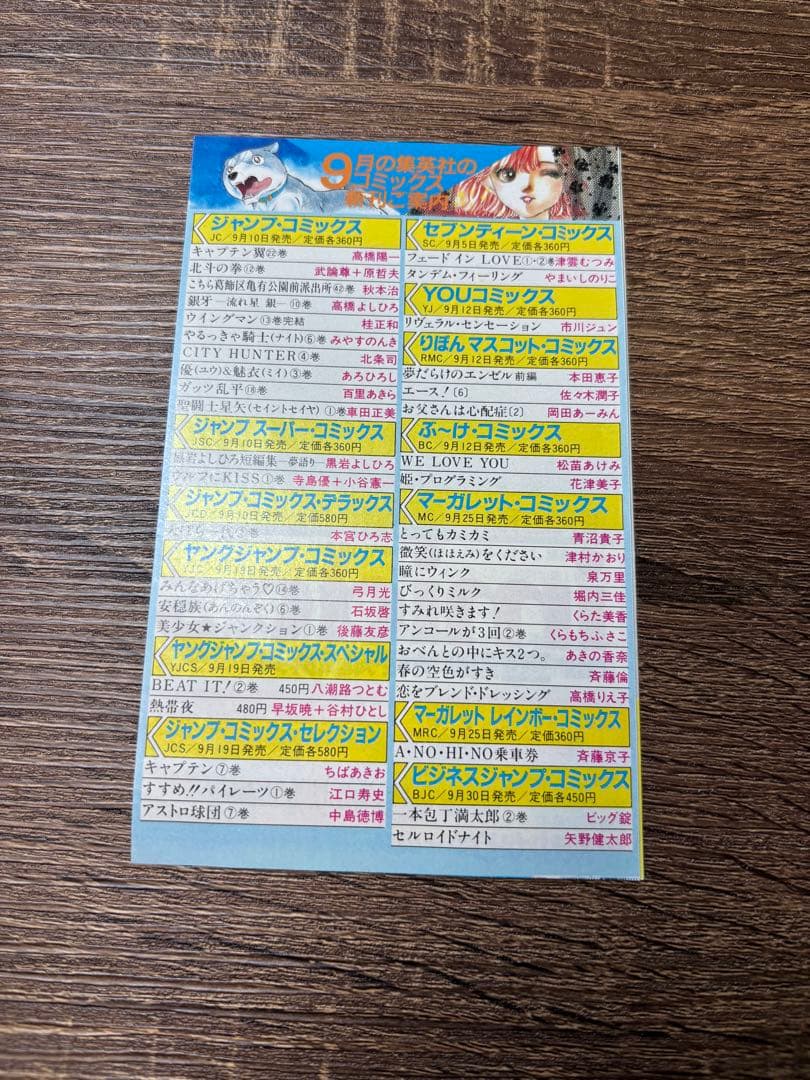 9月の集英社の
コミックス
新刊ご案内
ジャンプ・コミックス
JC/9月10日発売/定価各360円
キャプテン翼㉒巻 高橋陽一
北斗の拳⑫巻 武論尊+原哲夫
こちら葛飾区亀有公園前派出所㊷巻 秋本治
銀牙―流れ星 銀―⑩巻 高橋よしひろ
ウイングマン⑬巻完結 桂正和
やるっきゃ騎士(ナイト)⑥巻 みやすのんき
CITY HUNTER④巻 北条司
優(ユウ)&魅衣(ミイ)③巻 あろひろし
ガッツ乱平⑱巻 百里あきら
聖闘士星矢(セイントセイヤ)①巻 車田正美
ジャンプ スーパー・コミックス
JSC/9月10日発売/定価各360円
黒岩よしひろ短編集―夢語り― 黒岩よしひろ
KISS①巻 寺島優+小谷憲一
ジャンプ・コミックス・デラックス
JCD/9月10日発売/定価580円
本宮ひろ志
ヤングジャンプ・コミックス
YJC/9月19日発売/定価各360円
みんなあげちゃう♡⑭巻 弓月光
安穏族(あんのんぞく)⑥巻 石坂啓
美少女★ジャンクション①巻 後藤友彦
ヤングジャンプ・コミックス・スペシャル
YJCS/9月19日発売
BEAT IT!②巻 450円 八潮路つとむ
熱帯夜 480円 早坂暁+谷村ひとし
ジャンプ・コミックス・セレクション
JCS/9月19日発売/定価各580円
キャプテン⑦巻 ちばあきお
すすめ!!パイレーツ①巻 江口寿史
アストロ球団⑦巻 中島徳博
セブンティーン・コミックス
SC/9月5日発売/定価各360円
フェード イン LOVE①・②巻 津雲むつみ
タンデム・フィーリング やまいしのりこ
YOUコミックス
YJ/9月12日発売/定価360円
リヴェラル・センセーション 市川ジュン
りぼん マスコット・コミックス
RMC/9月12日発売/定価各360円
夢だらけのエンゼル 前編 本田恵子
エース!〔6〕 佐々木潤子
お父さんは心配症〔2〕 岡田あーみん
ふ〜け・コミックス
BC/9月12日発売/定価各360円
WE LOVE YOU 松苗あけみ
姫・プログラミング 花津美子
マーガレット・コミックス
MC/9月25日発売/定価各360円
とってもカミカミ 青沼貴子
微笑(ほほえみ)をください 津村かおり
瞳にウィンク 泉万里
びっくりミルク 堀内三佳
すみれ咲きます! くらた美香
アンコールが3回②巻 くらもちふさこ
おべんとの中にキス2つ。 あきの香奈
春の空色がすき 斉藤倫
恋をブレンド・ドレッシング 高橋りえ子
マーガレット レインボー・コミックス
MRC/9月25日発売/定価360円
A・NO・HI・NO乗車券 斉藤京子
ビジネスジャンプ・コミックス
BJC/9月30日発売/定価各450円
一本包丁満太郎②巻 ビッグ錠
セルロイドナイト 矢野健太郎